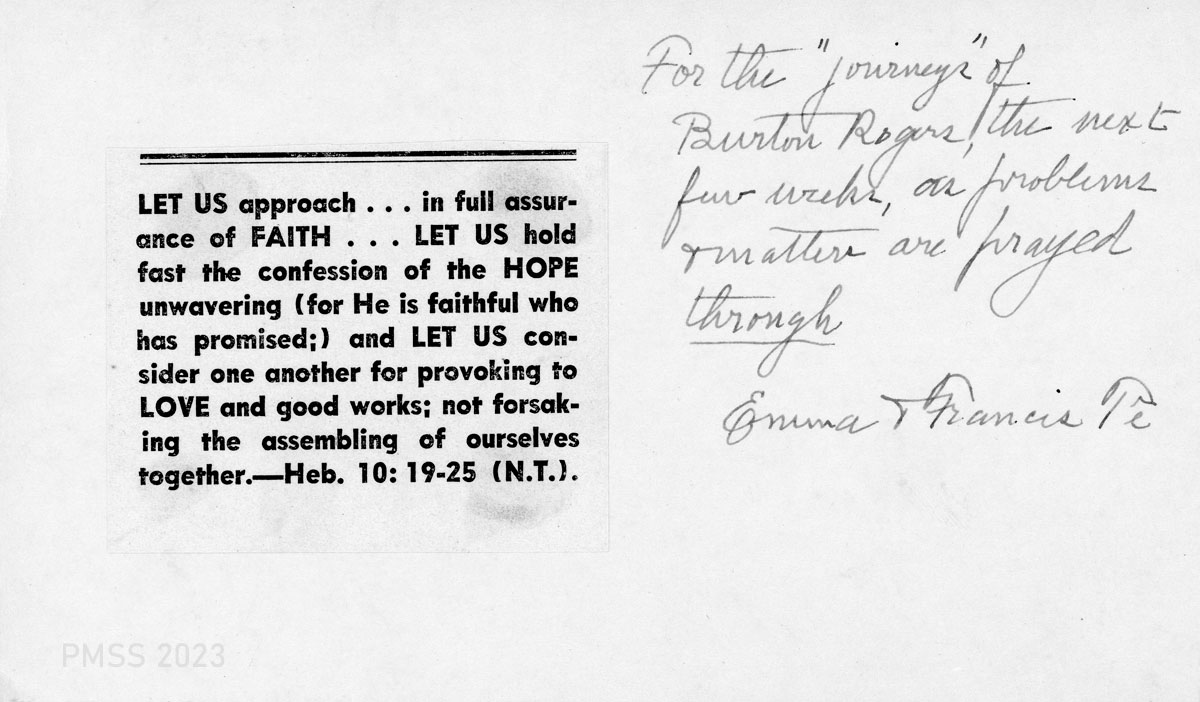 LET US approach . . . in full assur-
ance of FAITH . . . LET US hold
fast the confession of the HOPE
unwavering (for He is faithful who
has promised;) and LET US con-
sider one another for provoking to
LOVE and good works; not forsak-
ing the assembling of ourselves
together.—Heb. 10: 19-25 (N.T.).
For the "journeys" of
Burton Rogers, the next
few weeks, as problems
& matters are prayed
through
Emma & Francis
PMSS 2023